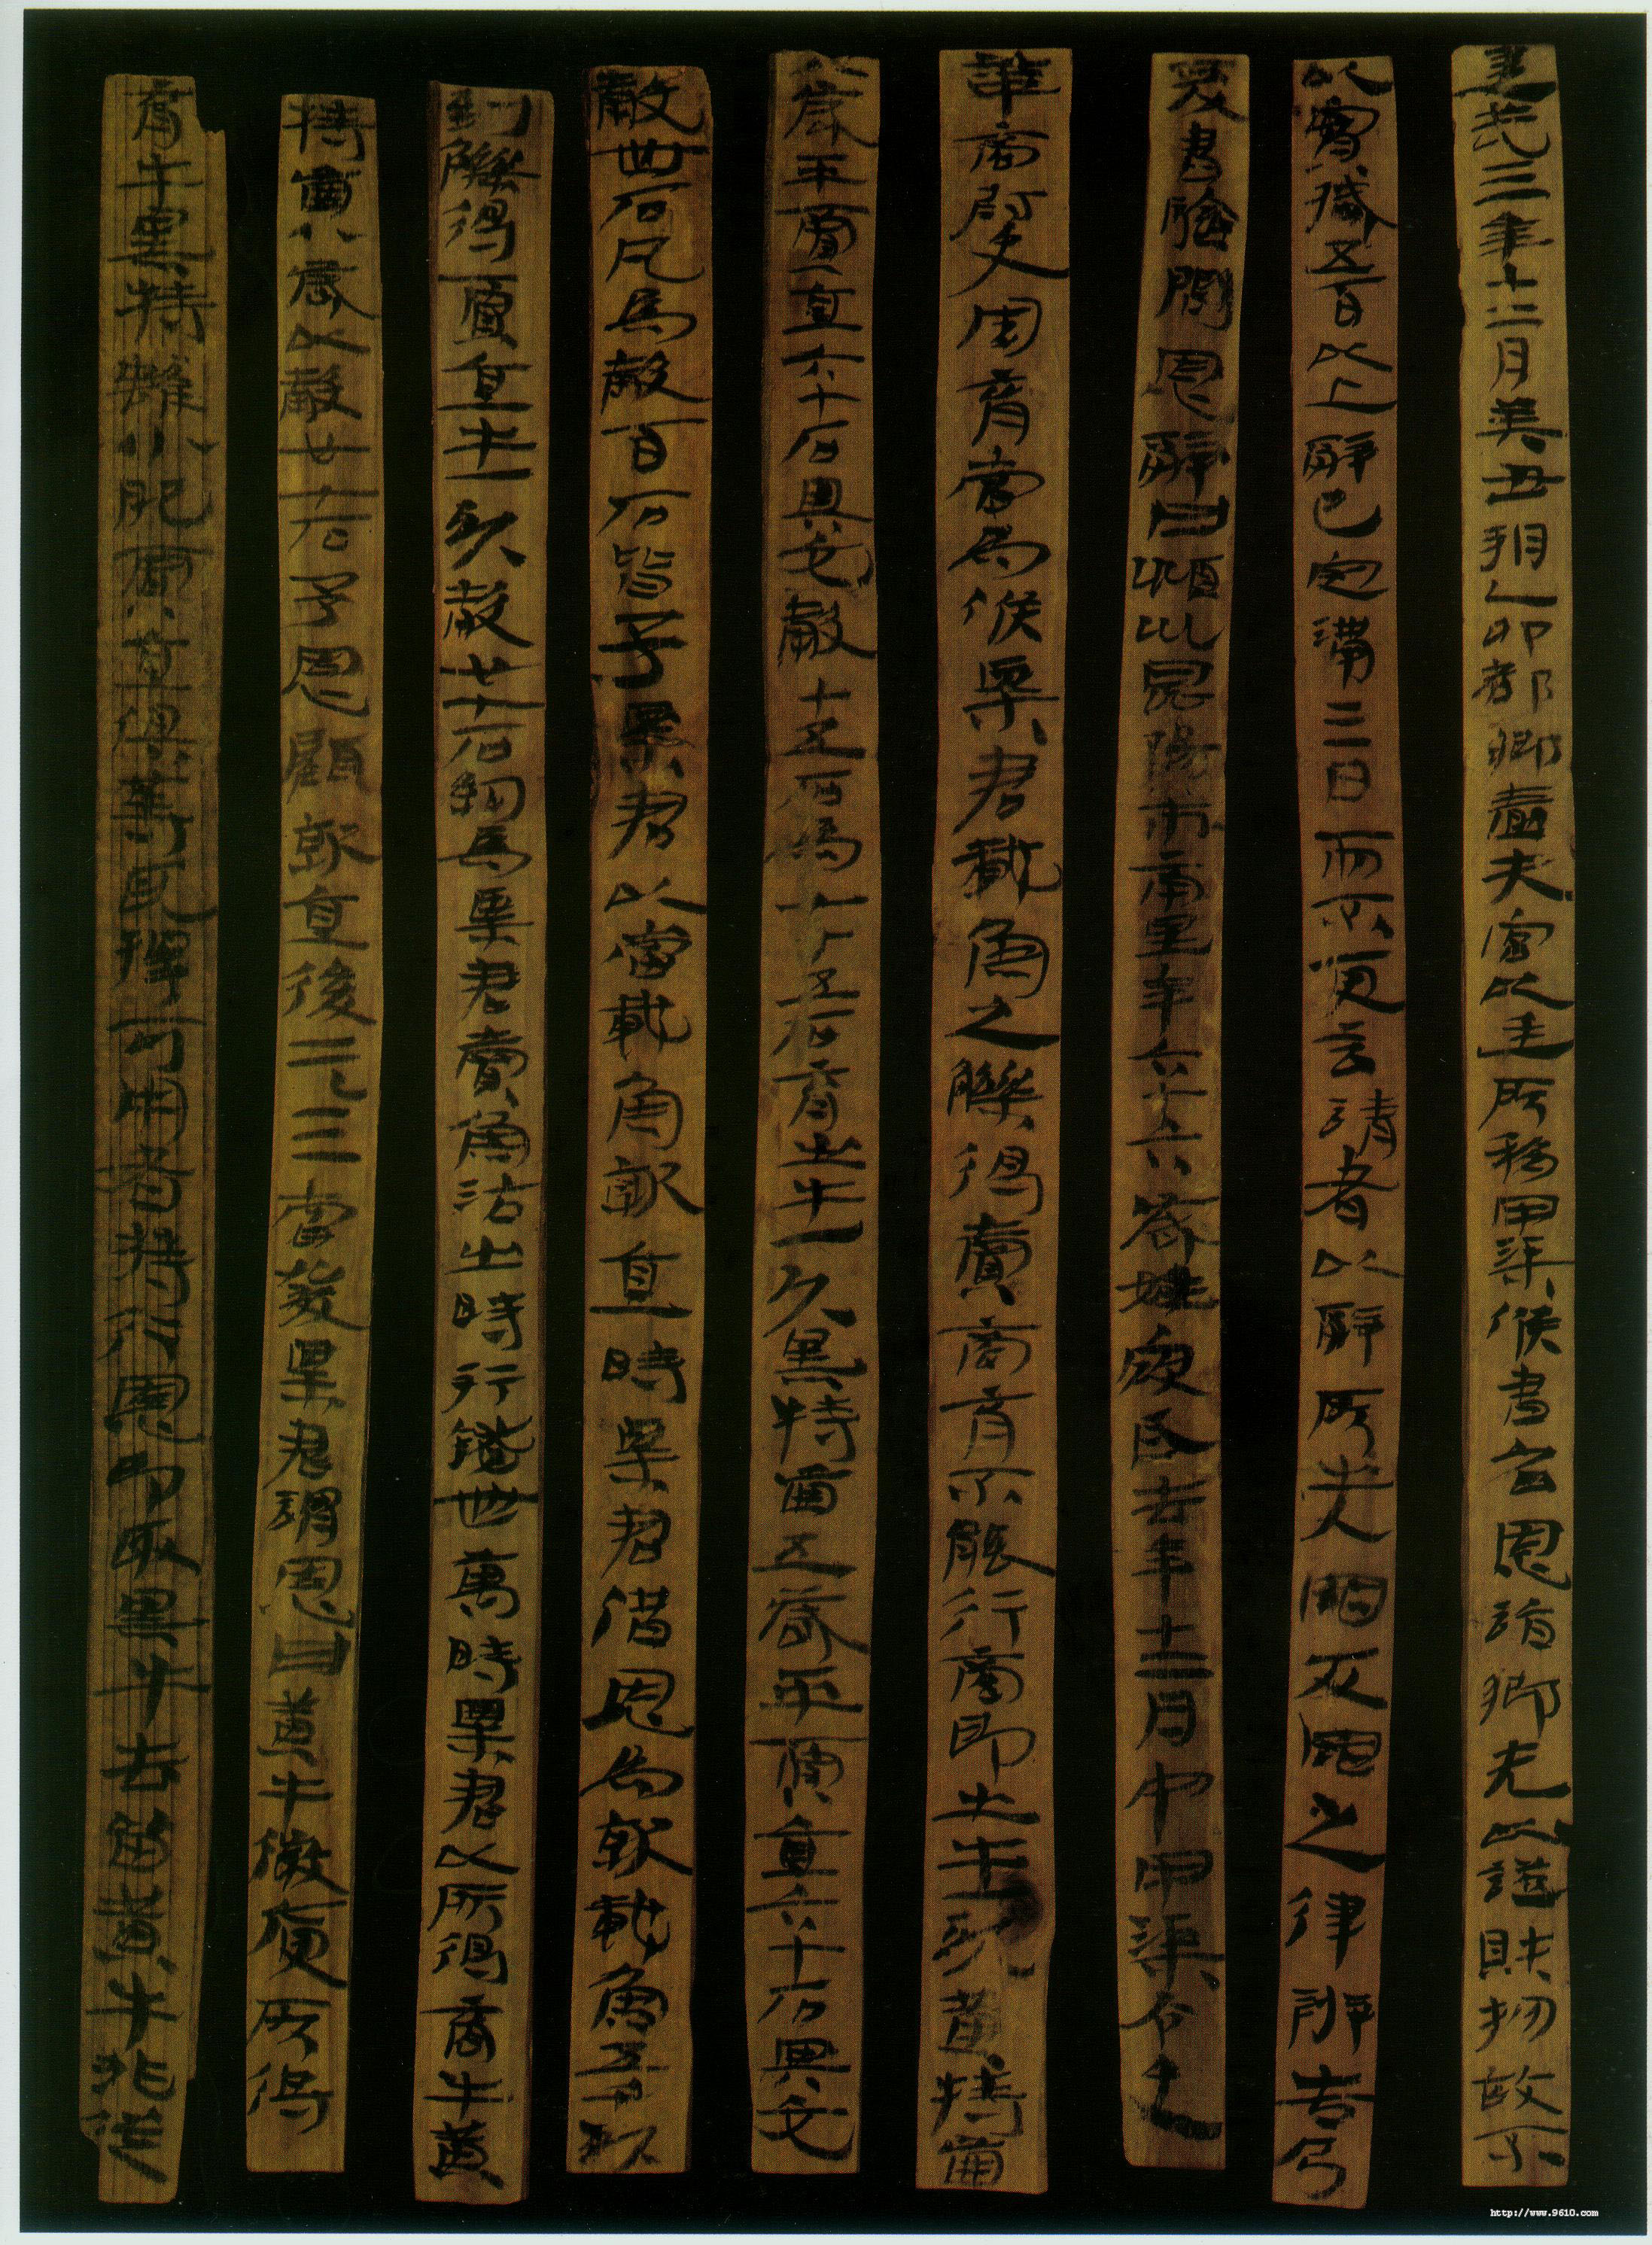 建武三年十二月癸丑朔乙卯都鄉嗇夫宮以廷所移甲渠候書召恩詣鄉先以證財物故不
以實臧五百以上辭已定滿三日而不更言請者以辭所出入罪反罪之律辨告乃
爰書驗問恩辭曰潁川昆陽市南里年六十六歲姓寇氏去年十二月中甲渠令史
華商尉史周育當為候粟君載魚之觻得賣商育不能行商即出牛一頭黃特齒
八歲平賈直六十石與它穀十五石為七十五石育出牛一頭黑特齒五歲平賈直六十石與它
穀卌石凡為穀百石皆予粟君以當載魚就直時粟君借恩為就載魚五千頭
到觻得賈直牛一頭穀廿七石約為粟君賣魚沽出時行錢卌萬時粟君以所得商牛黃
特齒八歲以穀廿七石予恩顧就直後二三日當發粟君謂恩曰黃牛微庾所得
育牛黑特雖小肥賈直俱等耳擇可用者持行恩即取黑牛去留黃牛非從
http://www.9610.com